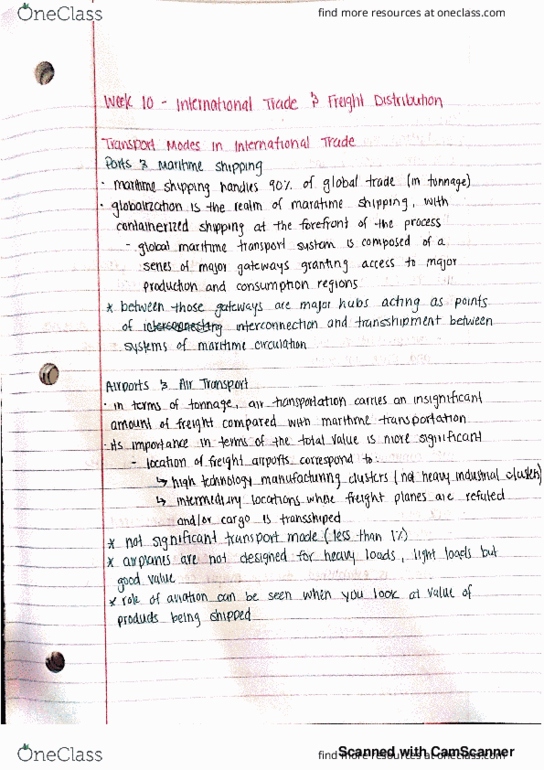 OneClass
find more resources at oneclass.com
Week 10 - International Trade & Freight Distribution
Transport Modes in International Trade
Ports & Maritime shipping
· maritime shipping handles 90% of global trade (in tonnage)
· globalization is the realm of maratime shipping, with
containerized shipping at the forefront of the process
- global maritime transport system is composed of a
series of major gateways granting access to major
production and consumption regions
* between those gateways are major hubs acting as points
of interconnection and transshipment between
systems of maritime circulation
Airports & Air Transport
· in terms of tonnage, air transportation carries an insignificant
amount of freight compared with maritime transportation
· its importance in terms of the total value is more significant
- location of freight airports correspond to:
↳ high technology manufacturing clusters (not heavy industrial cluster)
↳ intermediary locations where freight planes are refuled
and/or cargo is transshiped
* not significant transport mode (less than 1%)
* airplanes are not designed for heavy loads, light loads but
good value
* role of aviation can be seen when you look at value of
products being shipped
OneClass
find more resources at oneclass.com
Scanned with CamScanner